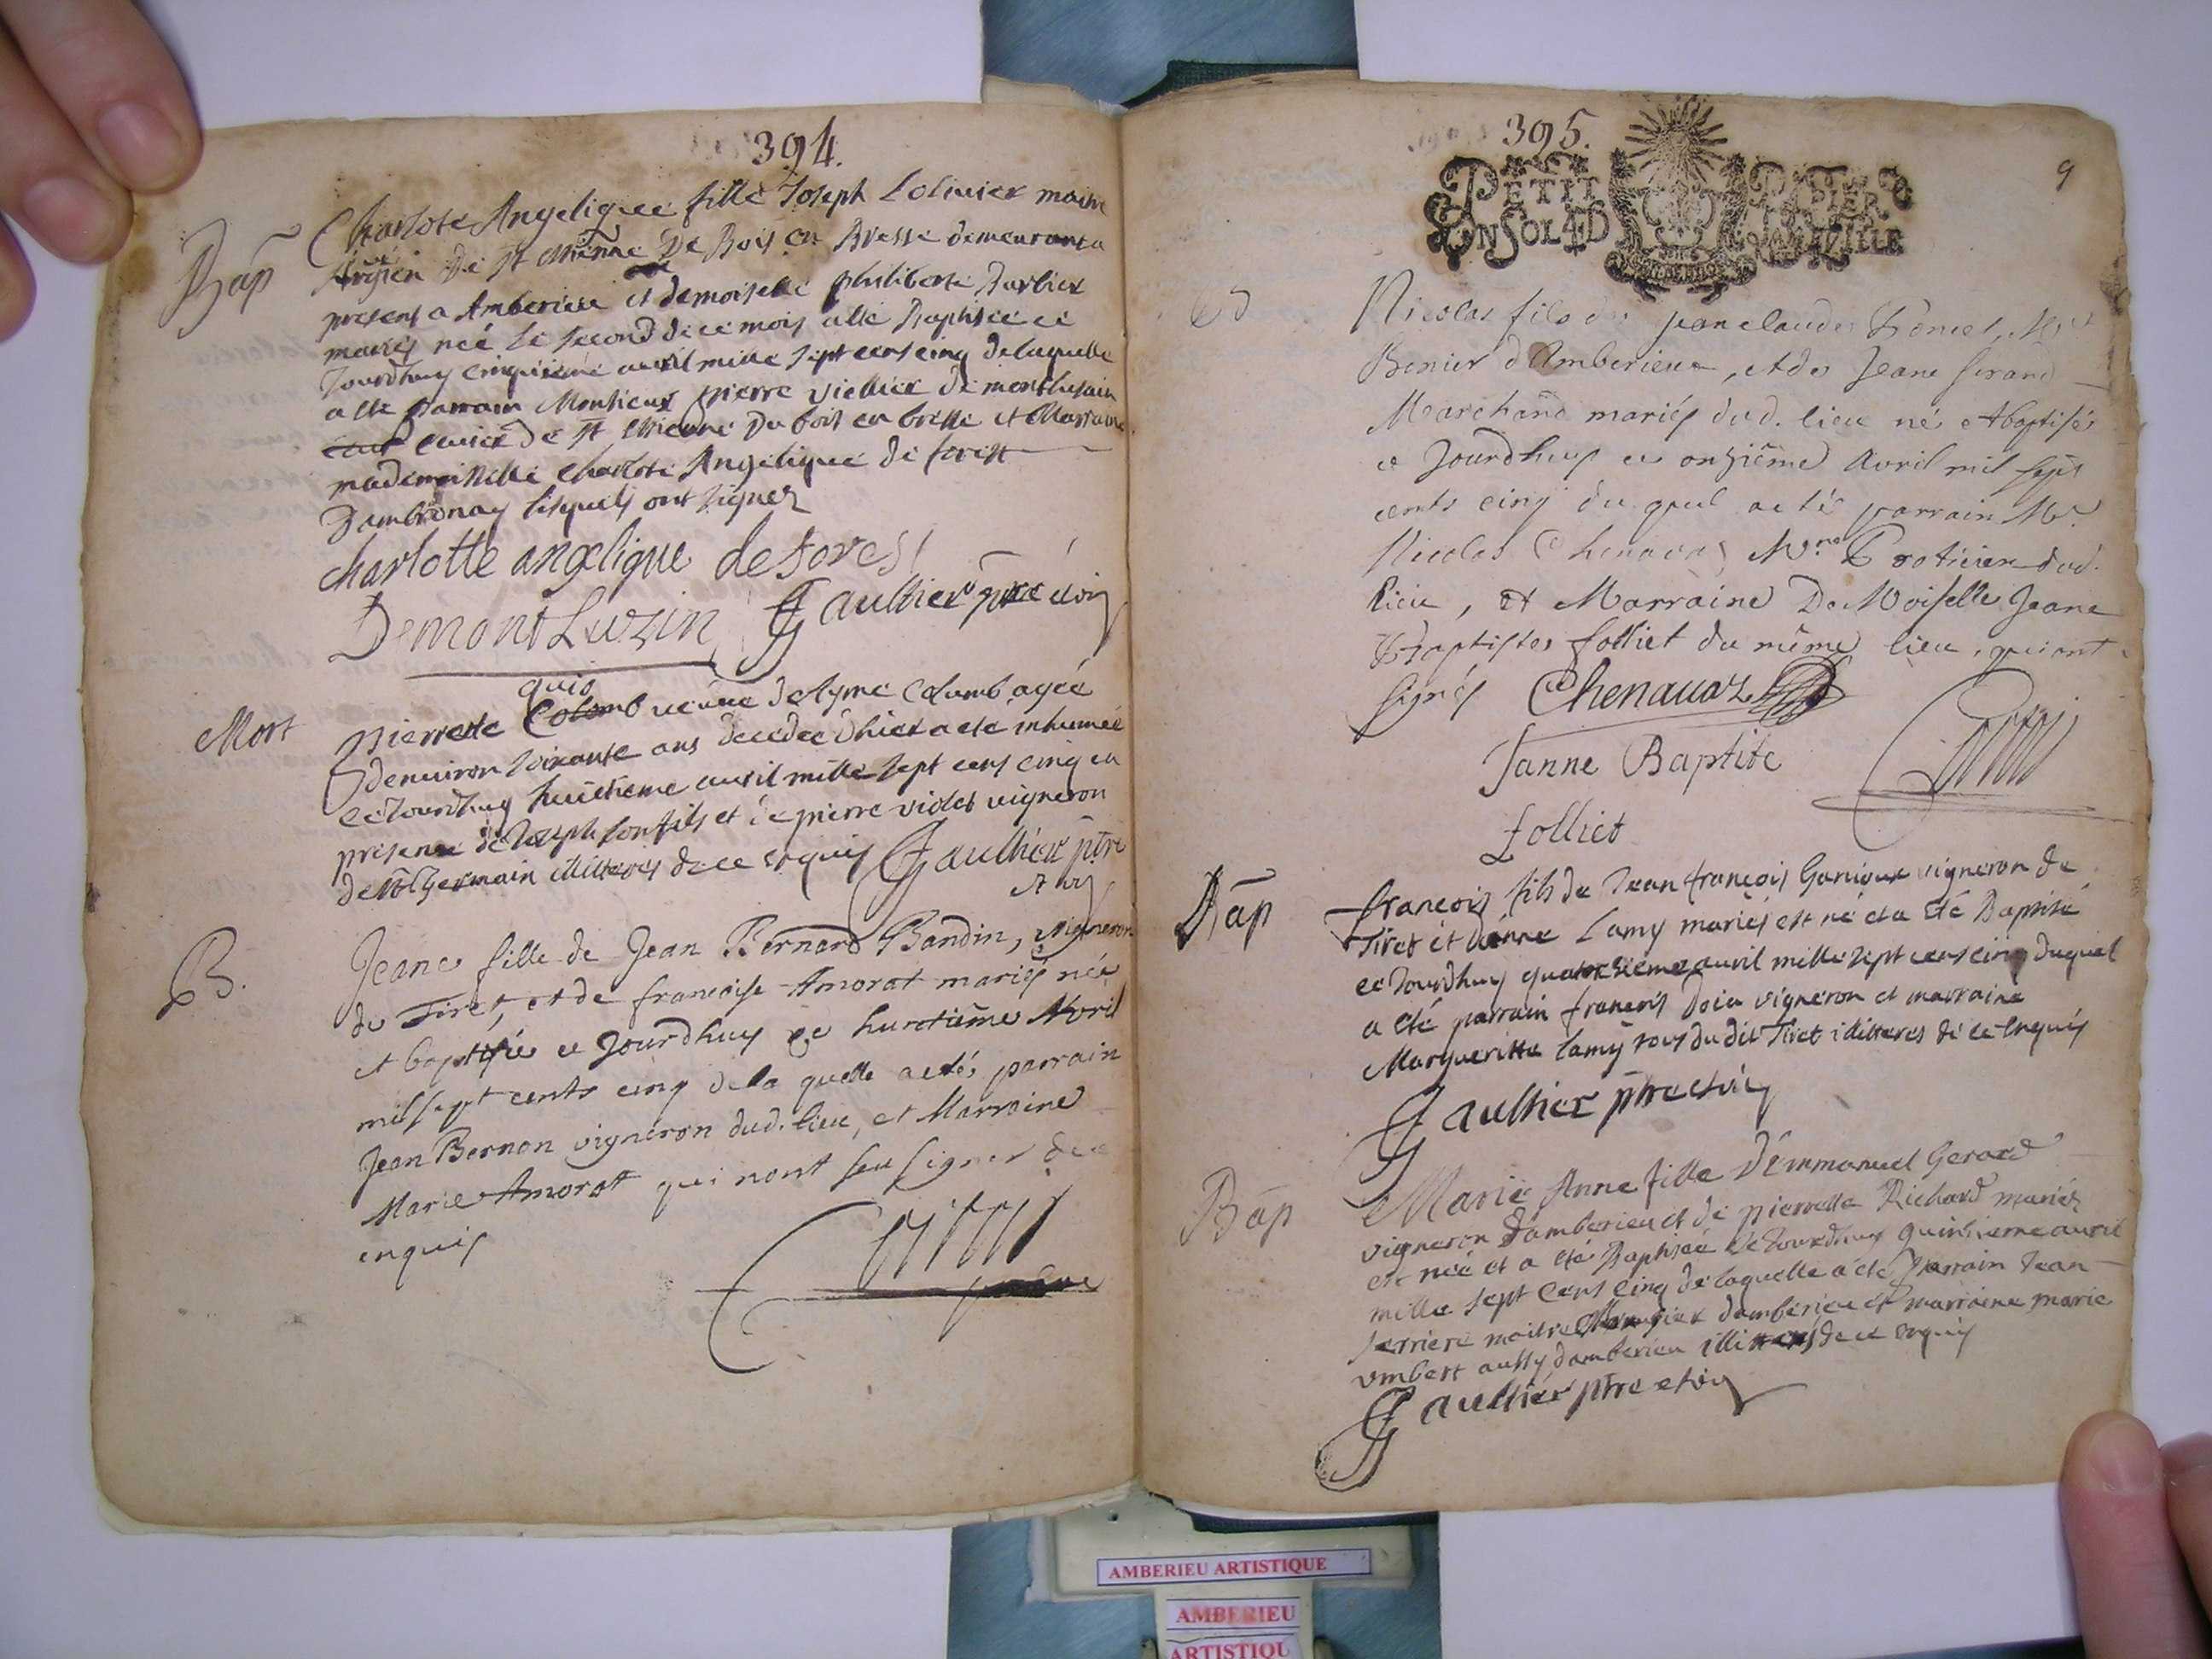 394.
Bap
Charlote Angeliquee fille Joseph Lolivier maitre
de st etienne De Bois en Bresse demeurant a
present a Amberieu et demoiselle philiberte Barbier
mariés née le second de ce mois a été Baptisée ce
Jourdhuy cinquieme avril mille sept cens cinq de laquelle
a été parrain Monsieur pierre viellier de montlusain
curier de st etienne Du bois en bresse et Marraine
mademoiselle Charlote Angelique de forest
Dambronay lesquels ont signez
charlotte angelique de forest
Demont Luzin Gaultier ptre
Mort
quis
pierrette Colomb veuve de Lyme Columb agée
denuiron soixante ans decedee dhier a eté inhumée
ce Jourdhuy huictieme auril mille sept cens cinq en
presence de Joseph son fils et de pierre violet vigneron
de st Germain illiteres de ce enquis Gaultier ptre
B.
Jeane fille de Jean Bernard Bandin, vigneron
du Tiret, et de francoise Amorat mariés née
et baptisée ce Jourdhuy ce huictième Avril
mil sept cents cinq de la quelle a eté parrain
Jean Bernon vigneron dud. lieu, et Marraine
Marie Amorat qui nont sceu signer de ce
enquis
395.
9
PETIT PAPIER
EN SOL 4 D LA FEUILLE
Nicolas fils de jean claude Mre
d'Amberieux, et de Jeane
Marchand mariés dud. lieu né et baptisé
ce Jourdhuy ce onzième Avril mil sept
cents cinq du quel a eté parrain Mr.
Nicolas Chenavaz dud.
lieu, et Marraine DeMoiselle Jeane
Baptiste folliet du même lieu, qui ont
signés Chenauaz
Janne Baptite
folliet
Bap
francois fils de Jean francois Ganioux vigneron de
Tiret et Lamy mariés est né et a été Baptisé
ce Jourdhuy quatorsieme auril mille sept cens cinq duquel
a été parrain francois vigneron et marraine
Margueritte Lamy tous du dit Tiret illiteres de ce Enquis
Gaultier ptre
Bap
Marie Anne fille D'emmanuel Gerard
vigneron Damberieu et de pierrette Richard mariés
est née et a été Baptisée ce Jourdhuy quinsieme auril
mille sept cens cinq de laquelle a été parrain Jean
serriere maitre damberieu et marraine marie
vmbert aussy damberieu illiteres de ce enquis
Gaultier ptre
AMBERIEU ARTISTIQUE
AMBERIEU
ARTISTIQU